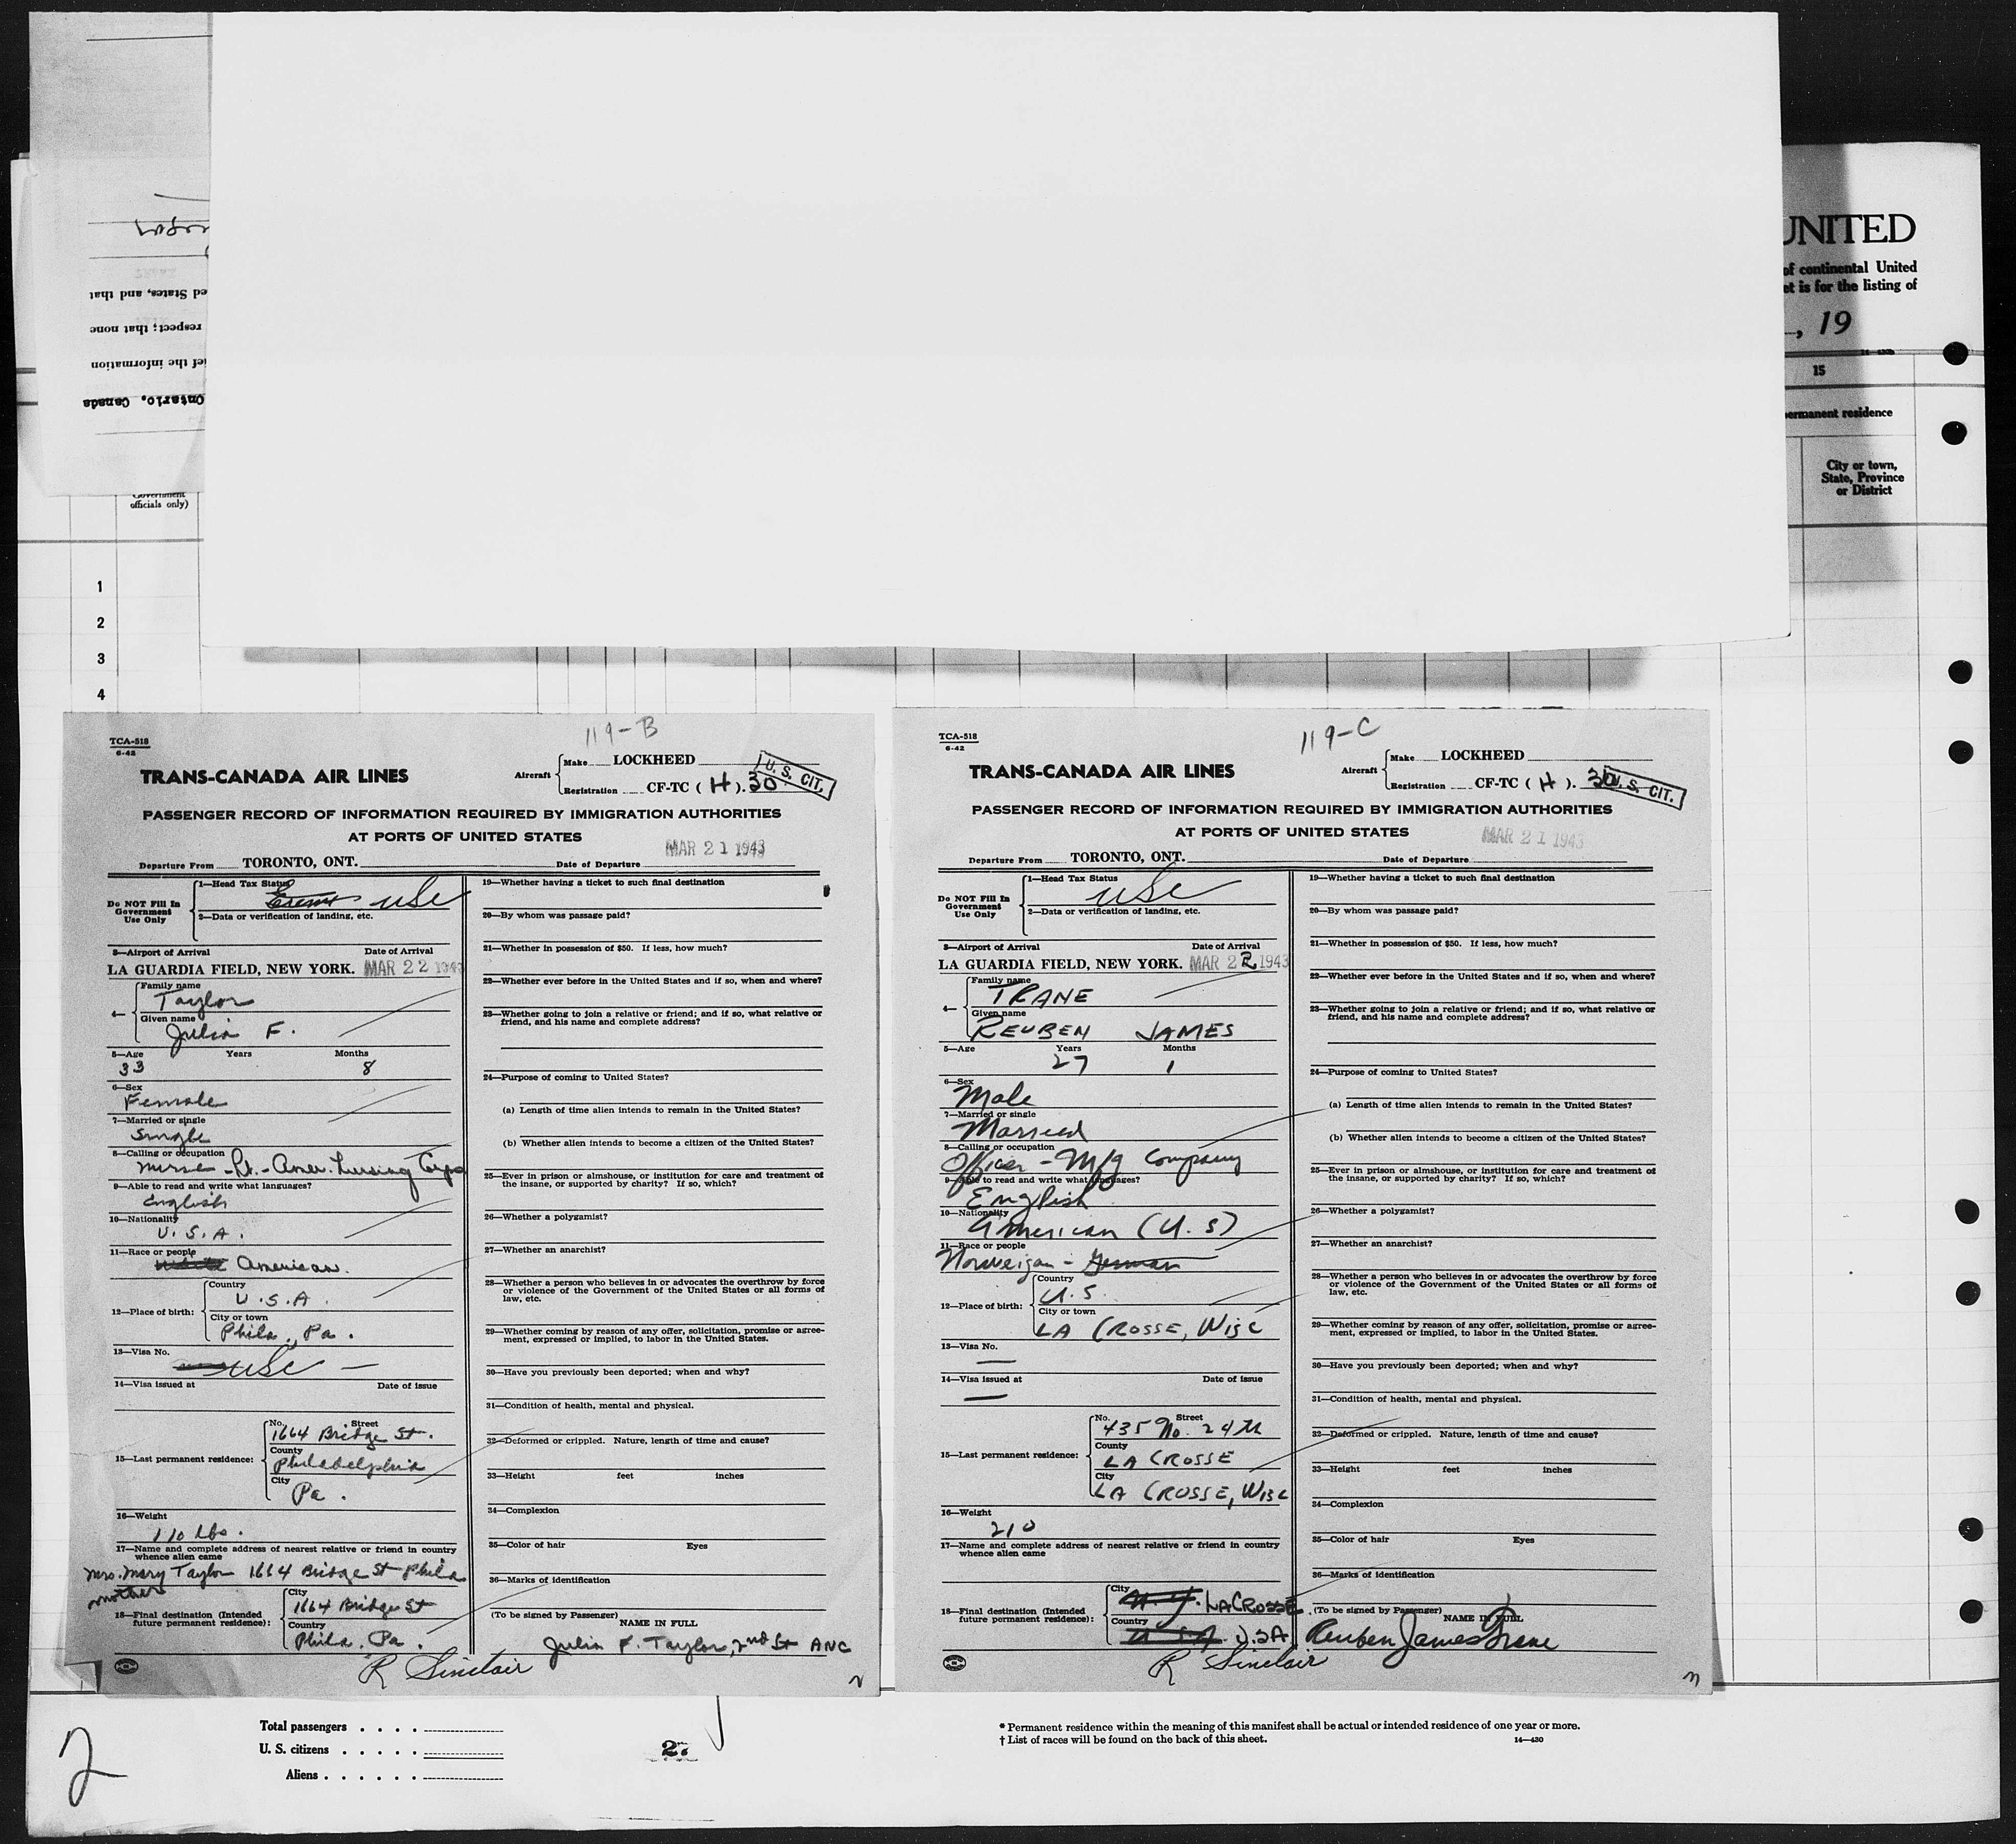 UNITED
of continental United
et is for the listing of
, 19
15
permanent residence
City or town,
State, Province
or District
ed States, and that
respect; that none
ief the information
Ontario, Canada
Government
officials only)
1
2
3
4
119-B
TCA-518
6-42
TRANS-CANADA AIR LINES
Aircraft
Make LOCKHEED
Registration CF-TC (H). 30
U. S. CIT.
PASSENGER RECORD OF INFORMATION REQUIRED BY IMMIGRATION AUTHORITIES
AT PORTS OF UNITED STATES
MAR 21 1943
Departure From TORONTO, ONT. Date of Departure
Do NOT Fill In
Government
Use Only
1—Head Tax Status
Exempt USC
2—Data or verification of landing, etc.
3—Airport of Arrival Date of Arrival
LA GUARDIA FIELD, NEW YORK. MAR 22 1943
4—
Family name
Taylor
Given name
Julia F.
5—Age Years Months
33 8
6—Sex
Female
7—Married or single
Single
8—Calling or occupation
nurse - Lt. - Amer. Nursing Corps
9—Able to read and write what languages?
English
10—Nationality
U.S.A.
11—Race or people
American.
12—Place of birth:
Country
U.S.A.
City or town
Phila., Pa.
13—Visa No.
USC —
14—Visa issued at Date of issue
15—Last permanent residence:
No. Street
1664 Bridge St.
County
Philadelphia
City
Pa.
16—Weight
110 lbs.
17—Name and complete address of nearest relative or friend in country
whence alien came
Mrs. Mary Taylor 1664 Bridge St Phila
mother
18—Final destination (Intended
future permanent residence):
City
1664 Bridge St
Country
Phila. Pa.
R Sinclair
19—Whether having a ticket to such final destination
20—By whom was passage paid?
21—Whether in possession of $50. If less, how much?
22—Whether ever before in the United States and if so, when and where?
23—Whether going to join a relative or friend; and if so, what relative or
friend, and his name and complete address?
24—Purpose of coming to United States?
(a) Length of time alien intends to remain in the United States?
(b) Whether alien intends to become a citizen of the United States?
25—Ever in prison or almshouse, or institution for care and treatment of
the insane, or supported by charity? If so, which?
26—Whether a polygamist?
27—Whether an anarchist?
28—Whether a person who believes in or advocates the overthrow by force
or violence of the Government of the United States or all forms of
law, etc.
29—Whether coming by reason of any offer, solicitation, promise or agree-
ment, expressed or implied, to labor in the United States.
30—Have you previously been deported; when and why?
31—Condition of health, mental and physical.
32—Deformed or crippled. Nature, length of time and cause?
33—Height feet inches
34—Complexion
35—Color of hair Eyes
36—Marks of identification
(To be signed by Passenger)
NAME IN FULL
Julia F. Taylor, 2nd Lt ANC
119-C
TCA-518
6-42
TRANS-CANADA AIR LINES
Aircraft
Make LOCKHEED
Registration CF-TC (H). 30
U. S. CIT.
PASSENGER RECORD OF INFORMATION REQUIRED BY IMMIGRATION AUTHORITIES
AT PORTS OF UNITED STATES
MAR 21 1943
Departure From TORONTO, ONT. Date of Departure
Do NOT Fill In
Government
Use Only
1—Head Tax Status
USC
2—Data or verification of landing, etc.
3—Airport of Arrival Date of Arrival
LA GUARDIA FIELD, NEW YORK. MAR 22 1943
4—
Family name
TRANE
Given name
REUBEN JAMES
5—Age Years Months
27 1
6—Sex
Male
7—Married or single
Married
8—Calling or occupation
Officer - Mfg Company
9—Able to read and write what languages?
English
10—Nationality
American (U.S)
11—Race or people
Norweigan - German
12—Place of birth:
Country
U.S.
City or town
LA CROSSE, WISC
13—Visa No.
—
14—Visa issued at Date of issue
—
15—Last permanent residence:
No. Street
435 No. 24th
County
LA CROSSE
City
LA CROSSE, WISC
16—Weight
210
17—Name and complete address of nearest relative or friend in country
whence alien came
18—Final destination (Intended
future permanent residence):
City
N.Y. LACROSSE
Country
U.S.A. USA
R Sinclair
19—Whether having a ticket to such final destination
20—By whom was passage paid?
21—Whether in possession of $50. If less, how much?
22—Whether ever before in the United States and if so, when and where?
23—Whether going to join a relative or friend; and if so, what relative or
friend, and his name and complete address?
24—Purpose of coming to United States?
(a) Length of time alien intends to remain in the United States?
(b) Whether alien intends to become a citizen of the United States?
25—Ever in prison or almshouse, or institution for care and treatment of
the insane, or supported by charity? If so, which?
26—Whether a polygamist?
27—Whether an anarchist?
28—Whether a person who believes in or advocates the overthrow by force
or violence of the Government of the United States or all forms of
law, etc.
29—Whether coming by reason of any offer, solicitation, promise or agree-
ment, expressed or implied, to labor in the United States.
30—Have you previously been deported; when and why?
31—Condition of health, mental and physical.
32—Deformed or crippled. Nature, length of time and cause?
33—Height feet inches
34—Complexion
35—Color of hair Eyes
36—Marks of identification
(To be signed by Passenger)
NAME IN FULL
Reuben James Trane
2
Total passengers . . . .
U. S. citizens . . . . .
Aliens . . . . . .
2.
* Permanent residence within the meaning of this manifest shall be actual or intended residence of one year or more.
† List of races will be found on the back of this sheet.
14—430